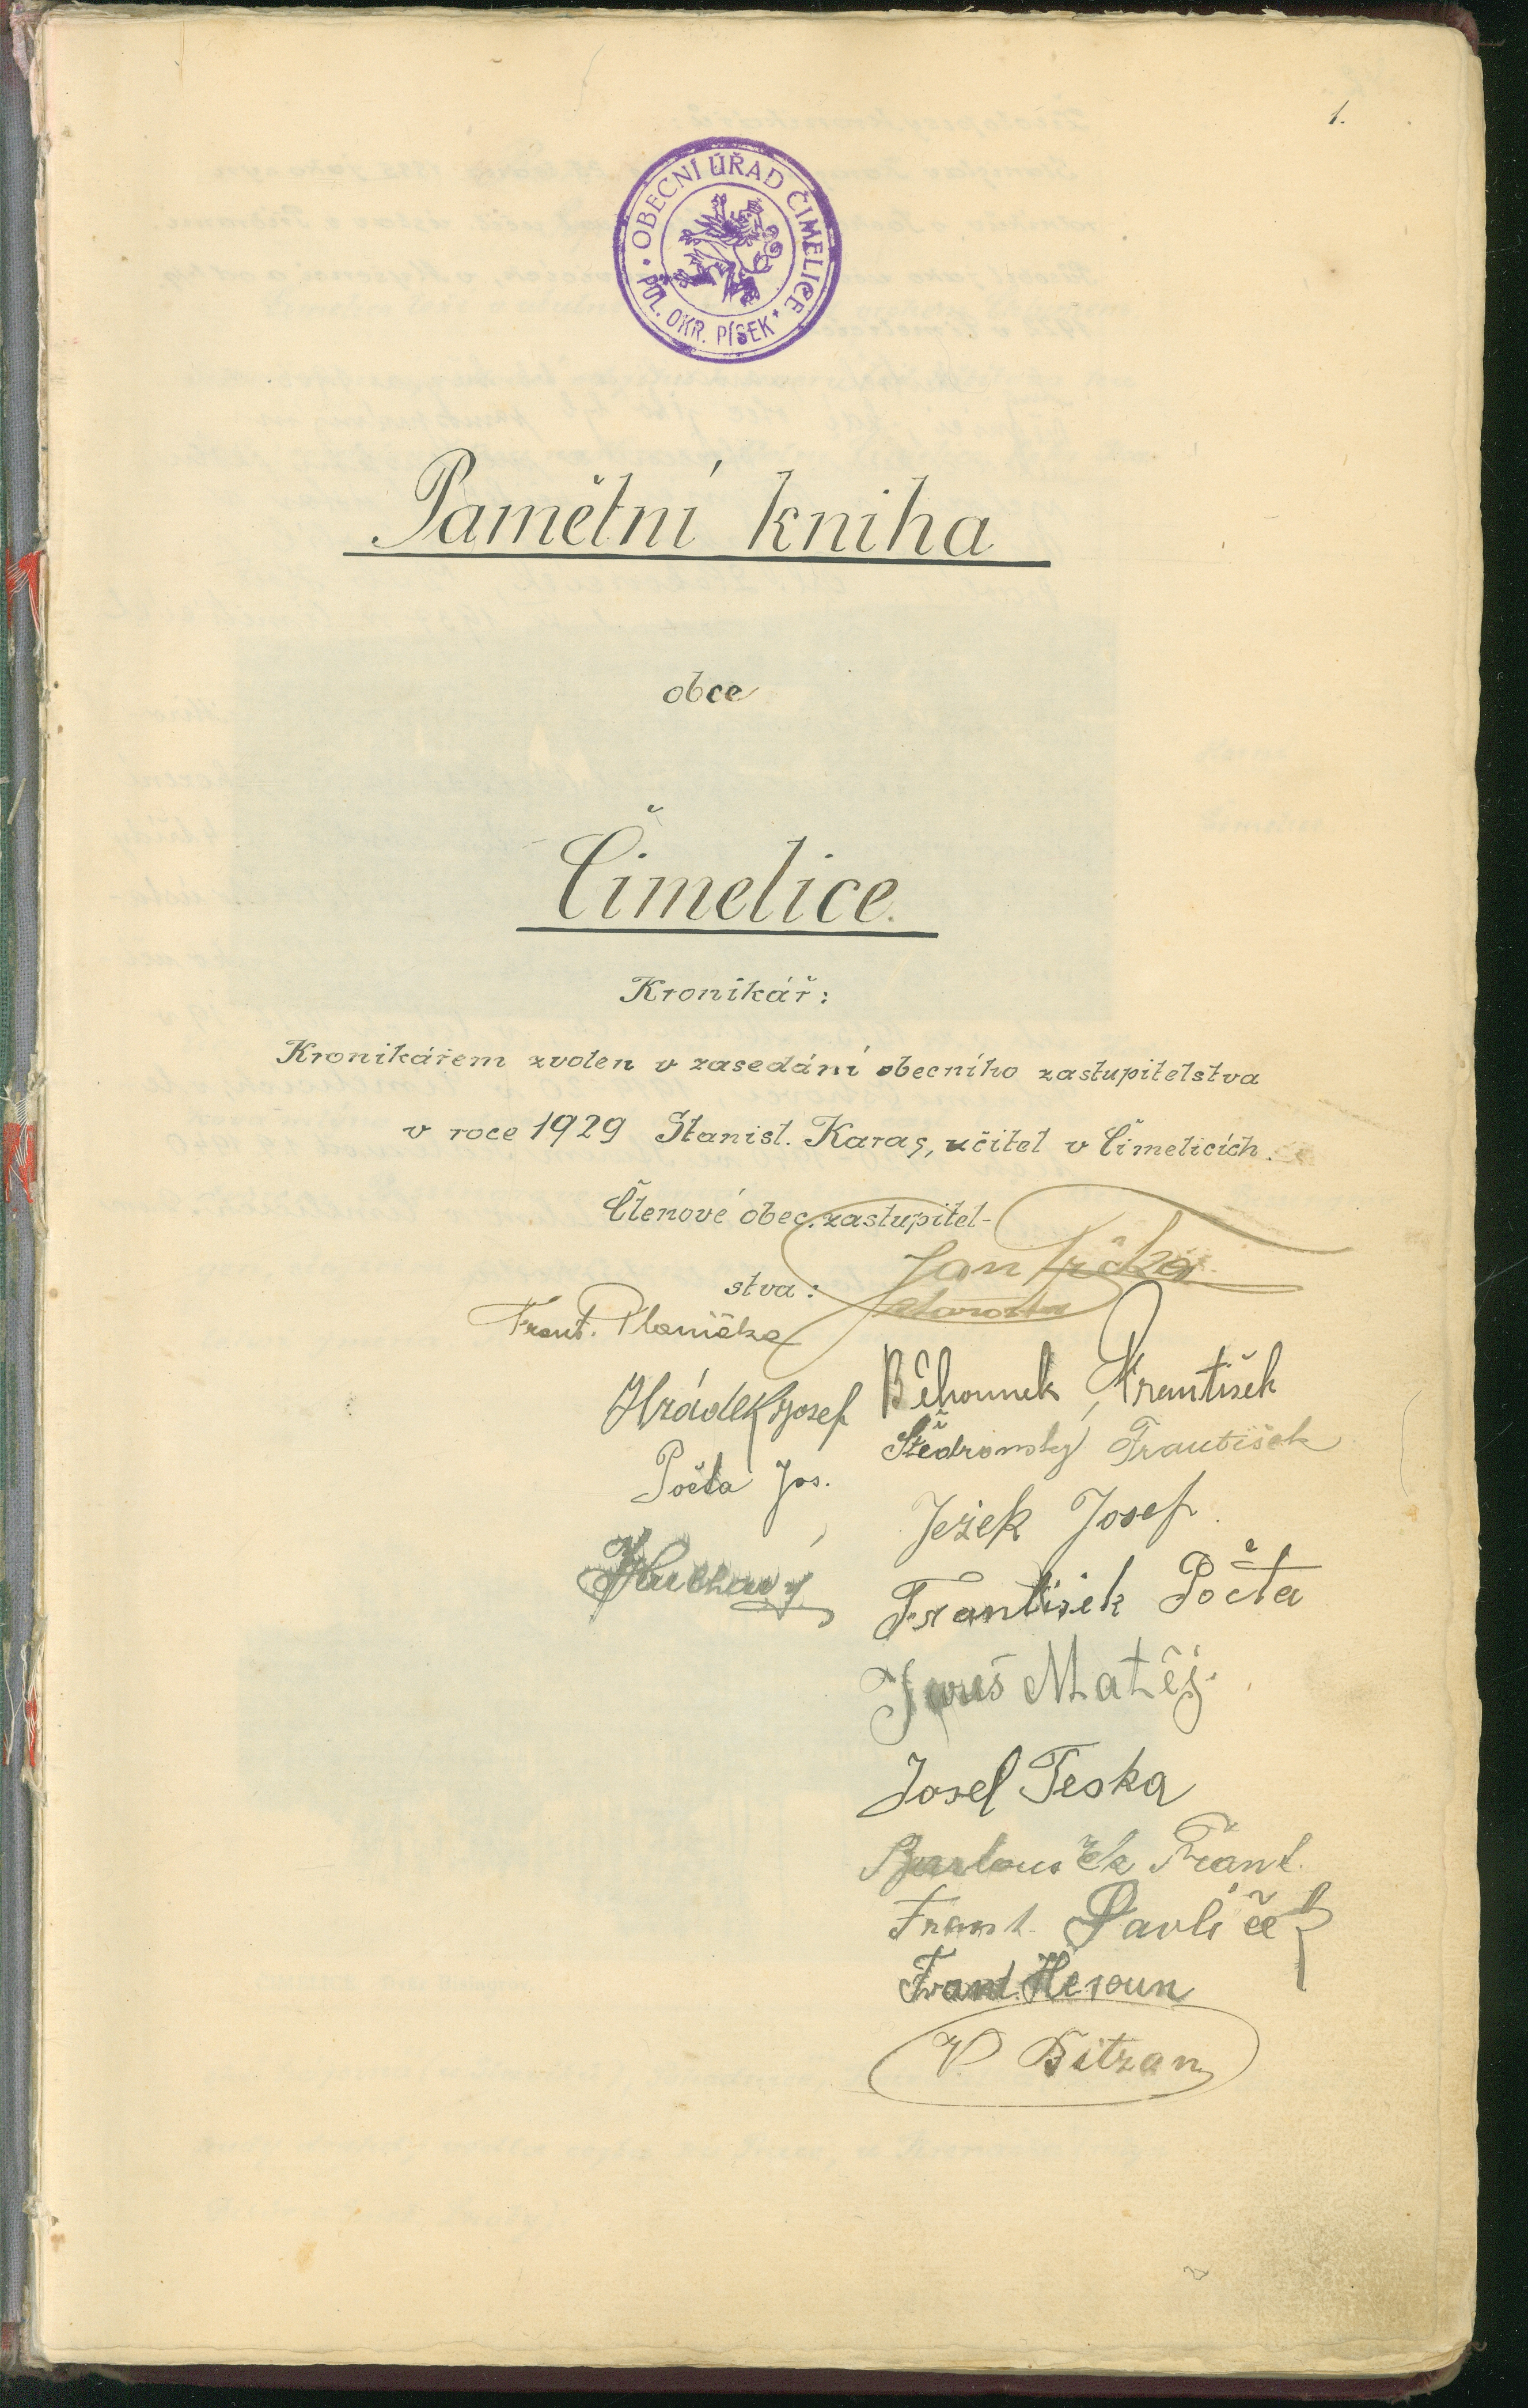 1.
OBECNÍ ÚŘAD ČIMELICE
POL. OKR. PÍSEK
Pamětní kniha
obce
Čimelice.
Kronikář:
Kronikářem zvolen v zasedání obecního zastupitelstva
v roce 1929 Stanisl. Karas, učitel v Čimelicích.
Členové obec. zastupitel-
stva:
Jan Trčka
starosta
Frant. Planička
Hrádek Josef
Počta Jos.
Běhounek František
František
Ježek Josef
František Počta
Matěj
Josef Teska
Frant.
Frant. Pavlíček
Frant. Heroun
V. Bitzan